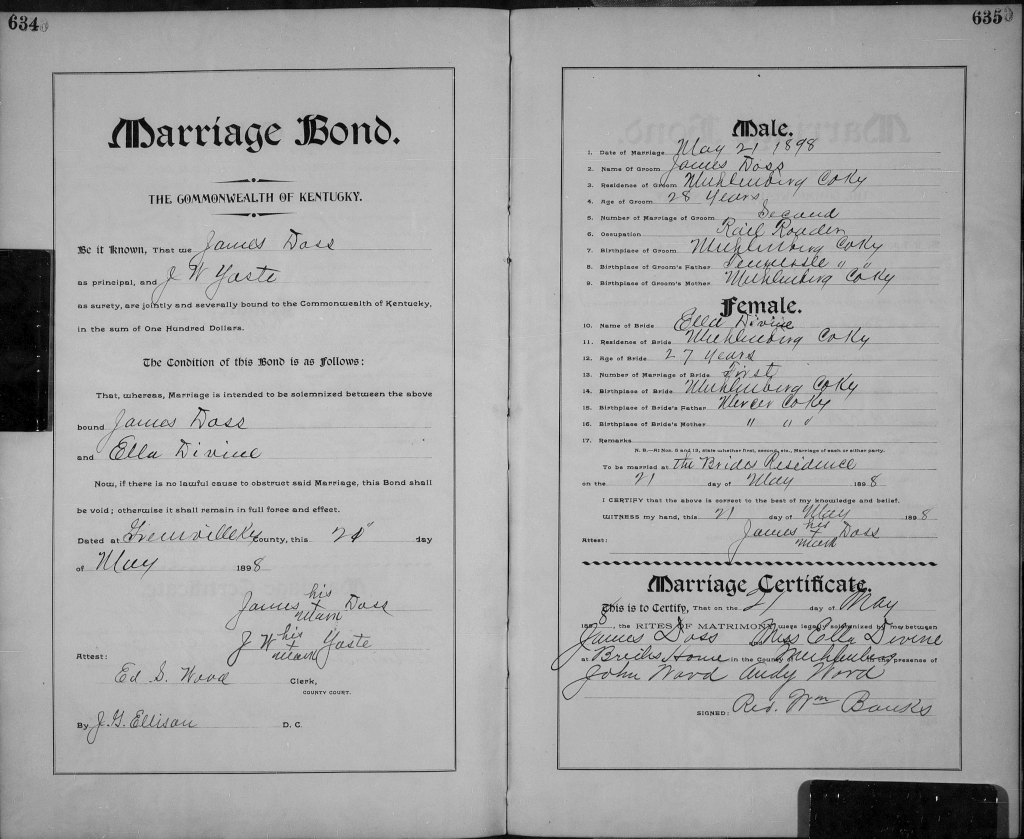 634
Marriage Bond.
THE COMMONWEALTH OF KENTUCKY.
Be it Known, That we James Doss
as principal, and J W Yaste
as surety, are jointly and severally bound to the Commonwealth of Kentucky,
in the sum of One Hundred Dollars.
The Condition of this Bond is as Follows:
That, whereas, Marriage is intended to be solemnized between the above
bound James Doss
and Ella Divine
Now, if there is no lawful cause to obstruct said Marriage, this Bond shall
be void; otherwise it shall remain in full force and effect.
Dated at Greenville Ky County, this 21 day
of May 1898
James his + mark Doss
J W his + mark Yaste
Attest:
Ed S. Wood Clerk,
COUNTY COURT.
By J. G. Ellison D. C.
635
Male.
1. Date of Marriage May 21 1898
2. Name Of Groom James Doss
3. Residence of Groom Muhlenberg Co Ky
4. Age of Groom 28 years
5. Number of Marriage of Groom Second
6. Occupation Rail Roader
7. Birthplace of Groom Muhlenberg Co Ky
8. Birthplace of Groom's Father Tennessee " "
9. Birthplace of Groom's Mother Muhlenberg Co Ky
Female.
10. Name of Bride Ella Divine
11. Residence of Bride Muhlenberg Co Ky
12. Age of Bride 27 years
13. Number of Marriage of Bride First
14. Birthplace of Bride Muhlenberg Co Ky
15. Birthplace of Bride's Father Mercer Co Ky
16. Birthplace of Bride's Mother " " "
17. Remarks
N. B.—At Nos. 5 and 13, state whether first, second, etc., Marriage of each or either party.
To be married at the Brides Residence
on the 21 day of May 1898
I CERTIFY that the above is correct to the best of my knowledge and belief.
WITNESS my hand, this 21 day of May 1898
James his + mark Doss
Attest:
Marriage Certificate.
This is to Certify, That on the 21 day of May
1898, the RITES OF MATRIMONY were legally solemnized by me between
James Doss Miss Ella Divine
at Brides Home in the County of Muhlenberg in the presence of
John Ward Andy Word
SIGNED: Rev. Wm Banks